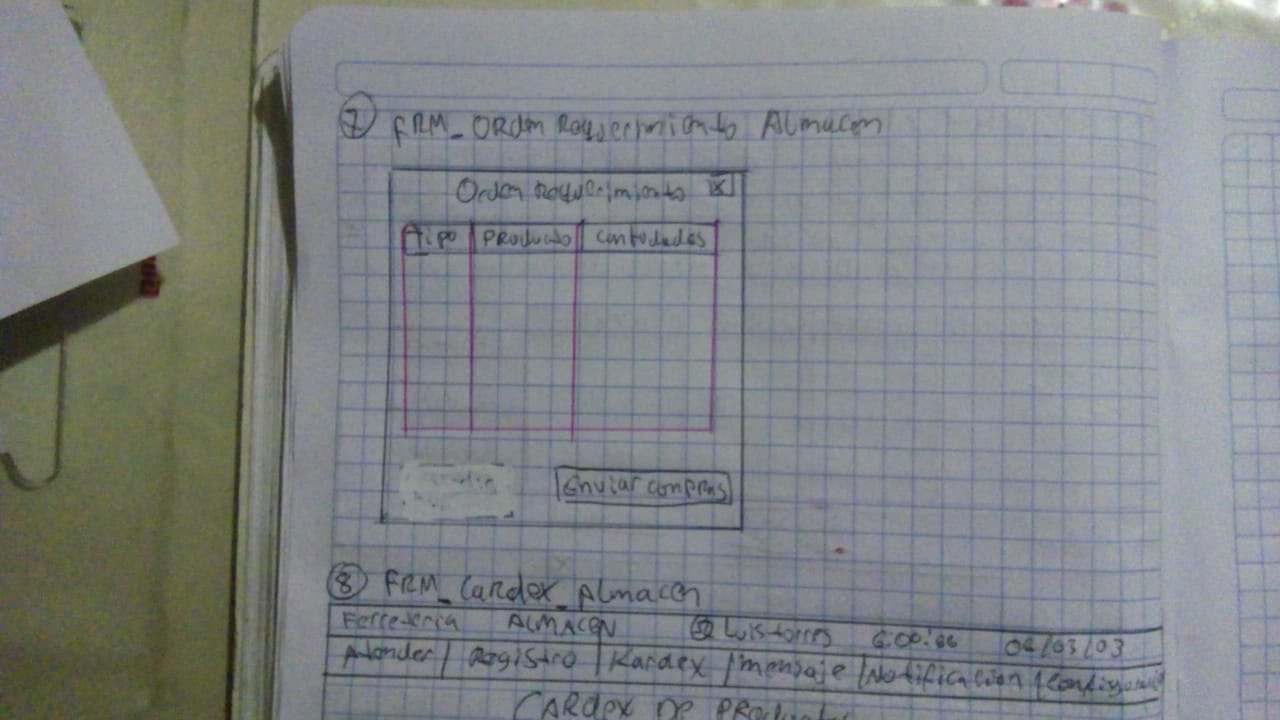 7 FRM_Orden Requerimiento Almacen
Orden Requerimiento X
Tipo Producto Cantidades
Enviar compras
8 FRM_Cardex_Almacen
Ferreteria ALMACEN Luis torres 6:00:06 06/03/03
Atender Registro Kardex mensaje Notificacion
CARDEX DE PRODUCTOS